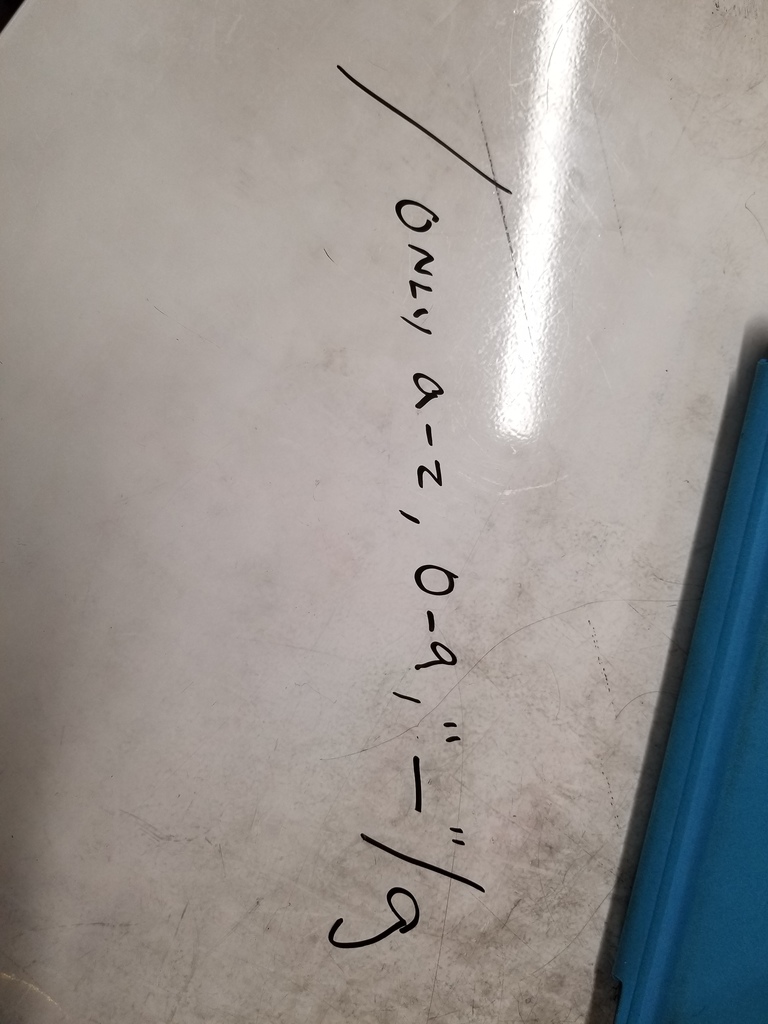 / ONLY a-z, 0-9, "-"/g